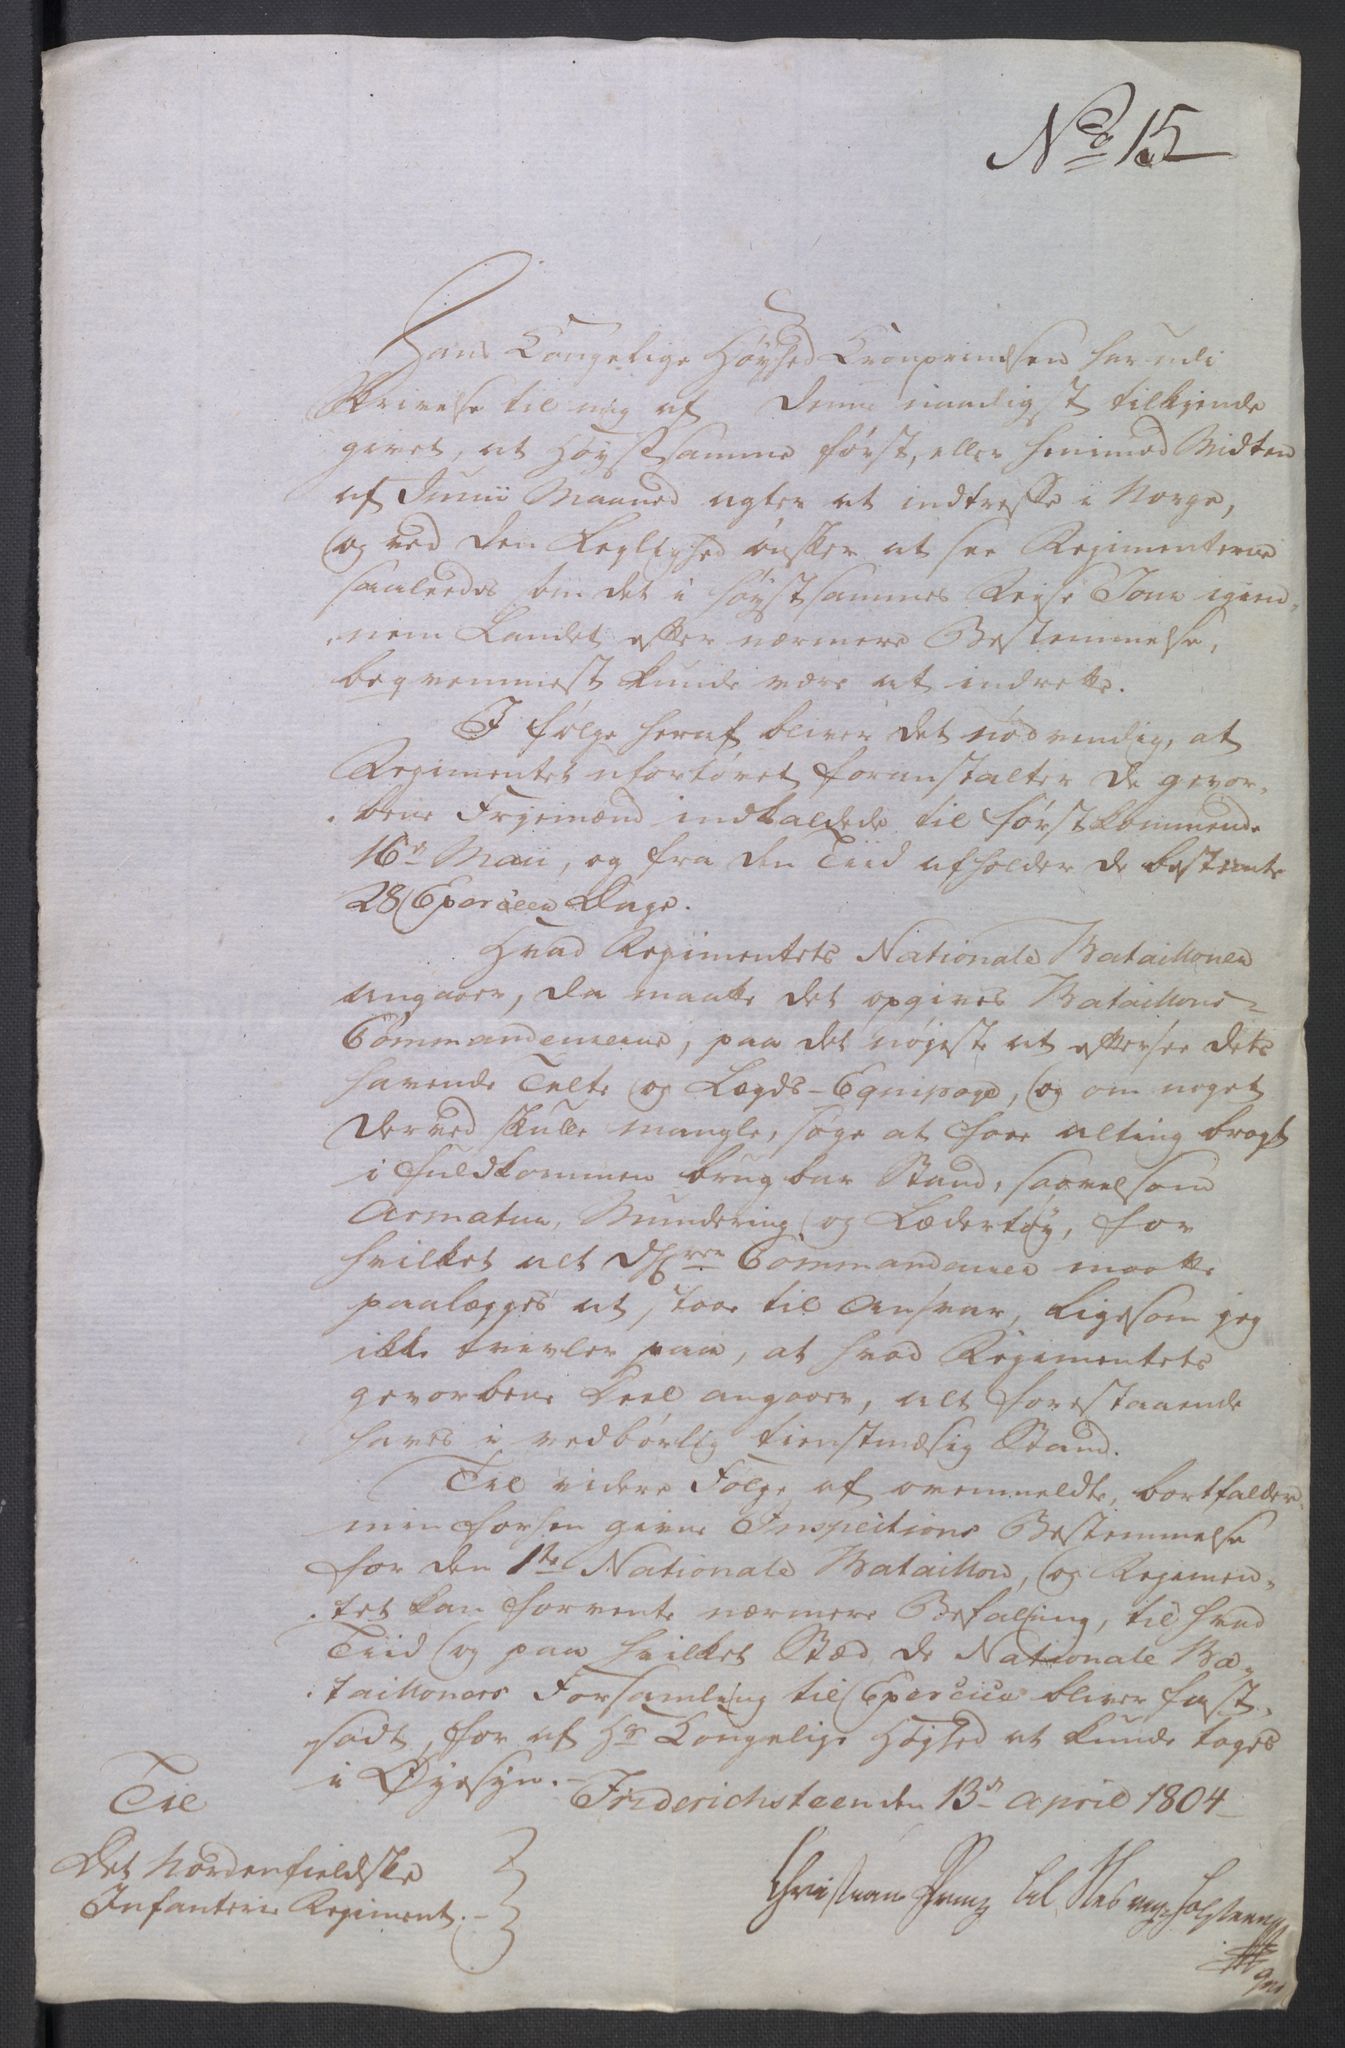 No 15
Hans Kongelige Høyhed Kronprindsen har udi
Skrivelse til mig af Denne naadigst tilkjende
givet, at Høystsamme først, eller henimod Midten
af Junii Maaned agter at indtreffe i Norge,
og ved den Leylighed ønsker at see Regimenterne
saaleedes som det i Høystsammes Reise Tour igien-
nem Landet efter nærmere Bestemmelse,
beqvemmest kunde være at indrette.
I følge heraf bliver det nødvendig, at
Regimentet ufortøvet foranstalter de gevor-
bene Frjemænd indkaldede til førstkommende
16de Maii, og fra den Tiid afholder de bestemte
28 Exerceer Dage.
Hvad Regimentets Nationale Batailloner
angaaer, da maatte det opgives Bataillons-
Commandeurerne, paa det nøjeste at eftersee dets
havende Telte og Lægds-Equipage, og om noget
derved skulle mangle, søge at faae alting bragt
i fuldkommen brugbar Stand, saavelsom
Armatur, Mundering og Lædertøy, for
hvilket alt Hrer Commandeurer maatte
paalægges at staae til Ansvar, ligesom jeg
ikke tvivler paa, at hvad Regimentets
gevorbene Deel angaaer, alt forestaaende
haves i vedbørlig tienstmæsig Stand.
Til videre Følge af ovenmeldte, bortfalder
min forhen givne Inspections Bestemmelse
for den 1te Nationale Bataillon, og Regimen-
tet kan forvente nærmere Befaling, til hvad
Tiid og paa hvilket Stæd de Nationale Ba-
tailloners Forsamling til Exercice bliver fast-
sadt, for af Hs Kongelige Høyhed at kunde tages
i Øyesyn.-
Friderichsteen den 13de April 1804
Til
Det Nordenfieldske
Infanterie Regiment.-
Christian Prinz til Hessen